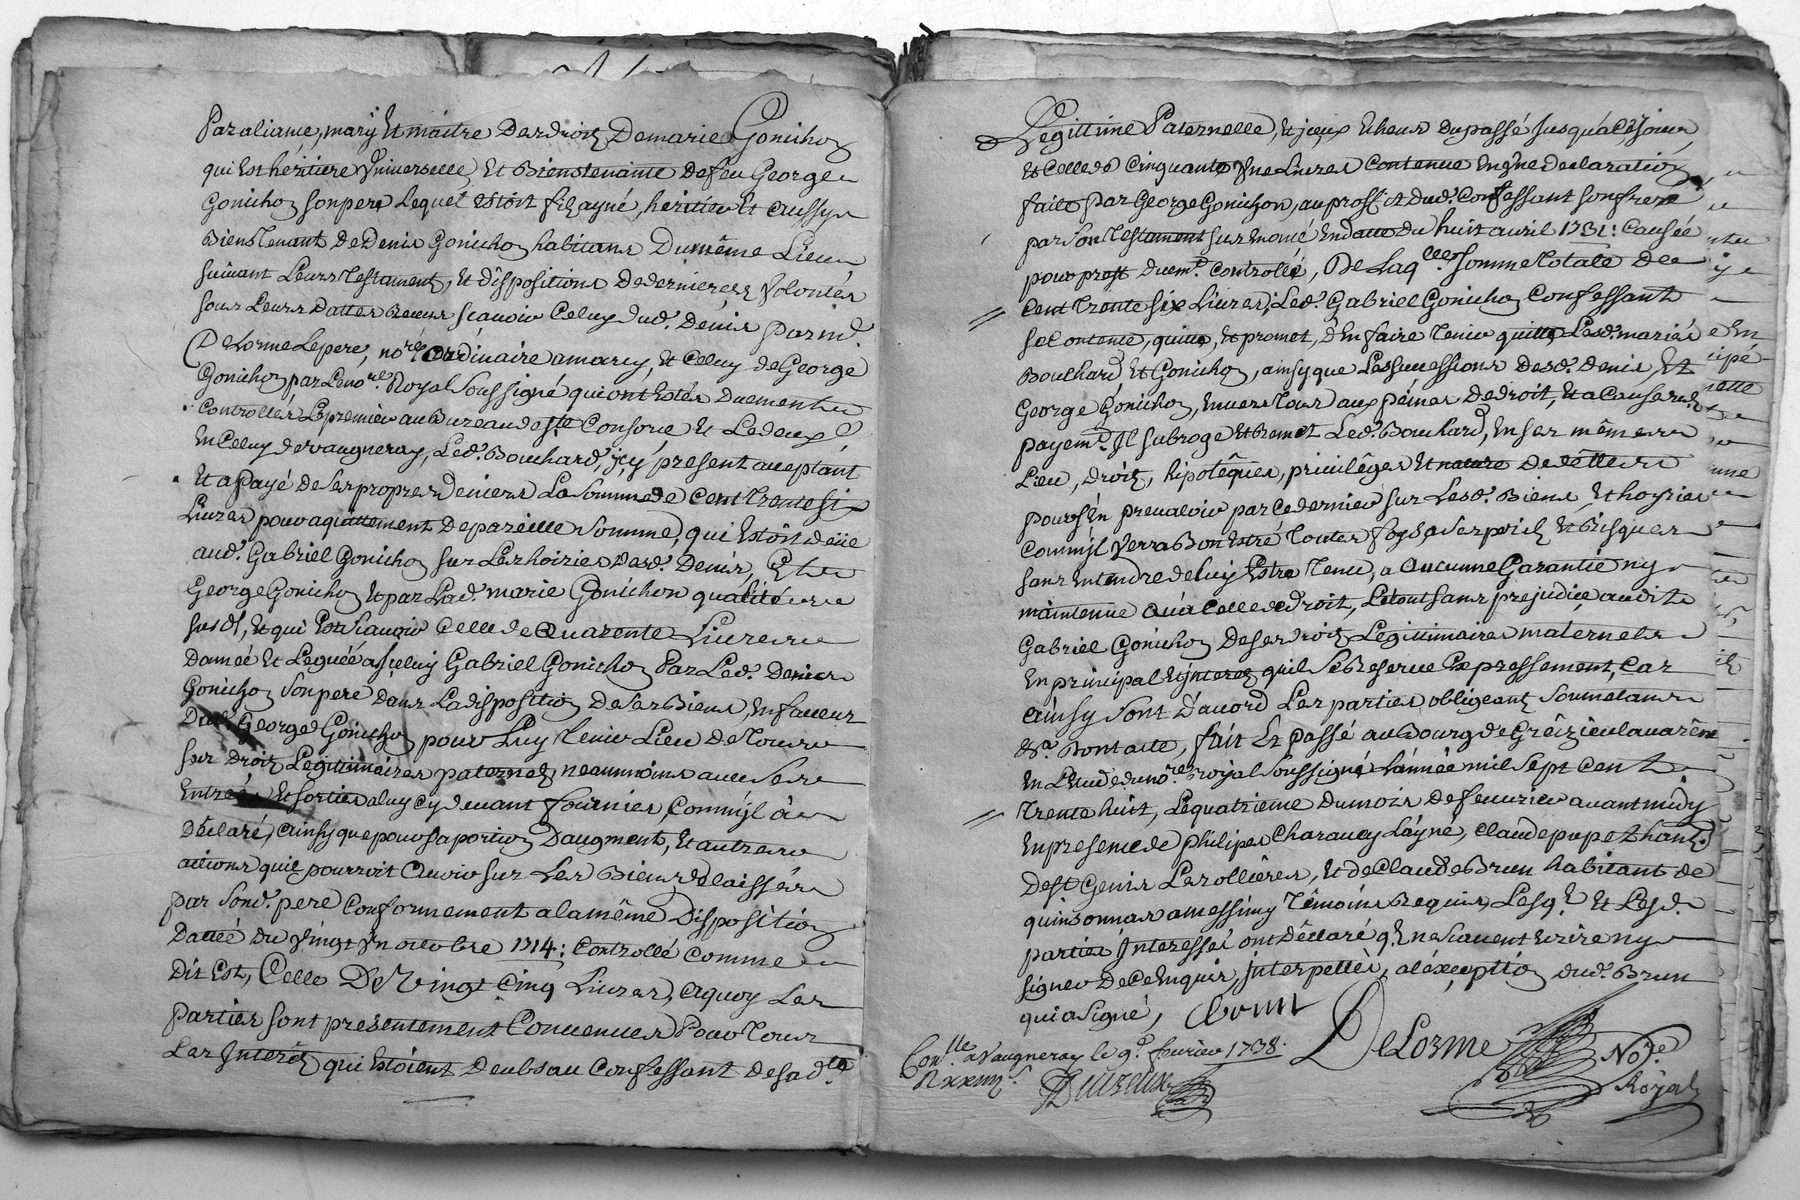 Par aliance, mary Et maistre Des droits De marie Gonichon
qui Est héritiere Universelle, Et Bienstenante de feu George
Gonichon son pere Lequel Estoit fils ayné, heritier Et aussy
Bienstenant De Denis Gonichon habitans Du même Lieu
suivant Leurs Testaments, Et dispositions De dernieres Volontés
sous Leurs Dattes Receus scavoir Celuy dud. Denis par m.e
DeLorme Le pere, no.re Ordinaire a marcy, et Celuy de George
Gonichon par Le no.re Royal soussigné qui ont Estés Duement
Controllés, Le premier au Bureau de s.te Consorce Et Le deux.e
En Celuy de vaugneray, Led. Bouchard, icy present acceptant
Et a Payé de ses propres deniers La somme de Cent Trente six
Livres pour aquittement De pareille somme, qui Estoit deüe
aud. Gabriel Gonichon sur Les hoiries Desd. Denis, Et
George Gonichon Et par Lad. marie Gonichon qualité
susd.t, Et qui Est scavoir Celle de Quarente Livres
Donneé Et Leguée a Iceluy Gabriel Gonichon Par Led. Denis
Gonichon son pere Dans La disposition De ses Biens, En faveur
Dud. George Gonichon pour Luy Tenir Lieu De Tous
ses droits Legittimaires paternels neanmoins avec ses
Entrées Et sorties a luy cy devant fournies, Comm'jl a
Déclaré, ainsy que pour sa portion D'augment, Et autres
actions quil pourroit avoir sur Les Biens delaissés
par sond. pere Conformement a la même Disposition
Dattée du vingt Un octobre 1714: Controllé comme
Dit Est, Celle De Vingt Cinq Livres, a quoy Les
Parties sont presentement Convenues Pour Tous
Les Interets qui Estoient Deubs au Confessant de sad.te
Legittime Paternelle, et jceux Echeus du passé Jusqu'a Ce Jour,
Et Celle de Cinquante Une Livres Contenue En Une declaration
faite par George Gonichon, au proffit dud. Confessant son frere
par son Testament sus Enoncé En datte du huit avril 1731: Causée
pour prest duem.t Controllé, De Laq.lle somme Totale De
Cent Trente six Livres, Led. Gabriel Gonichon Confessant
se Contente, quitte, Et promet, d'En faire Tenir quitte Lesd. mariés
Bouchard Et Gonichon, ainsy que Les successions Desd. Denis, Et
George Gonichon, Envers Tous aux peines De droit, Et a Cause du
payem.t Il subroge Et Remet Led. Bouchard, En ses mêmes
Lieu, Droits, hipotêques, privilêges Et nature De dette
pour s'En prevaloir par Ce dernier sur Lesd. Biens, Et hoyries
Comm'jl Verra Bon Estre Toutes foys a ses perils Et Risques
sans Entendre de luy Estre Tenu, a aucunne Garantie ny
maintenue qu'a Celle de droit, Le tout sans prejudice audit
Gabriel Gonichon De ses droits Legittimaires maternels
En principal Et jnterets quil se Reserve Expressement, Car
ainsy sont d'acord Les parties obligeant soumetans
&.a Dont acte, fait Et passé au Bourg de Grêizieu la varêne
En L'Etude du no.re Royal soussigné L'année mil sept cent
Trente huit, Le quatrieme du mois de fevrier avant midy
En presence de philipes Charavey L'ayné, Claude pupe
De s.t Genis Les ollières, Et de Claude Brun habitant de
quinsonnas a messimy Têmoins Requis, Lesq.ls Et Lesd.
parties Interessés ont Déclaré q.' Ne scavent Ecrire ny
signer De Ce Enquis, Interpellés, a l'éxception dud. Brun
qui a signé, Brun
DeLorme No.re
Royal
Con.lle a Vaugneray le 9.e fevrier 1738.